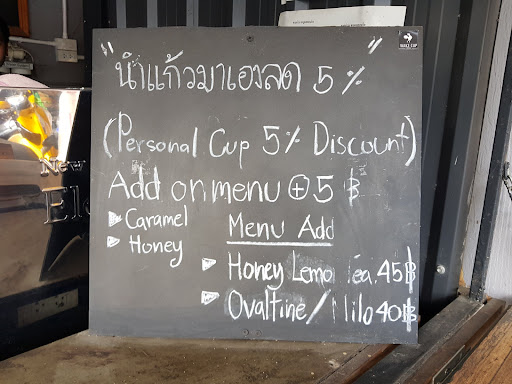 "นำแก้วมาเองลด 5 %"
(Personal Cup 5% Discount)
Add on menu + 5 ฿
▶ Caramel
▶ Honey
Menu Add
▶ Honey Lemo Tea 45฿
▶ Ovaltine/Milo 40฿
New